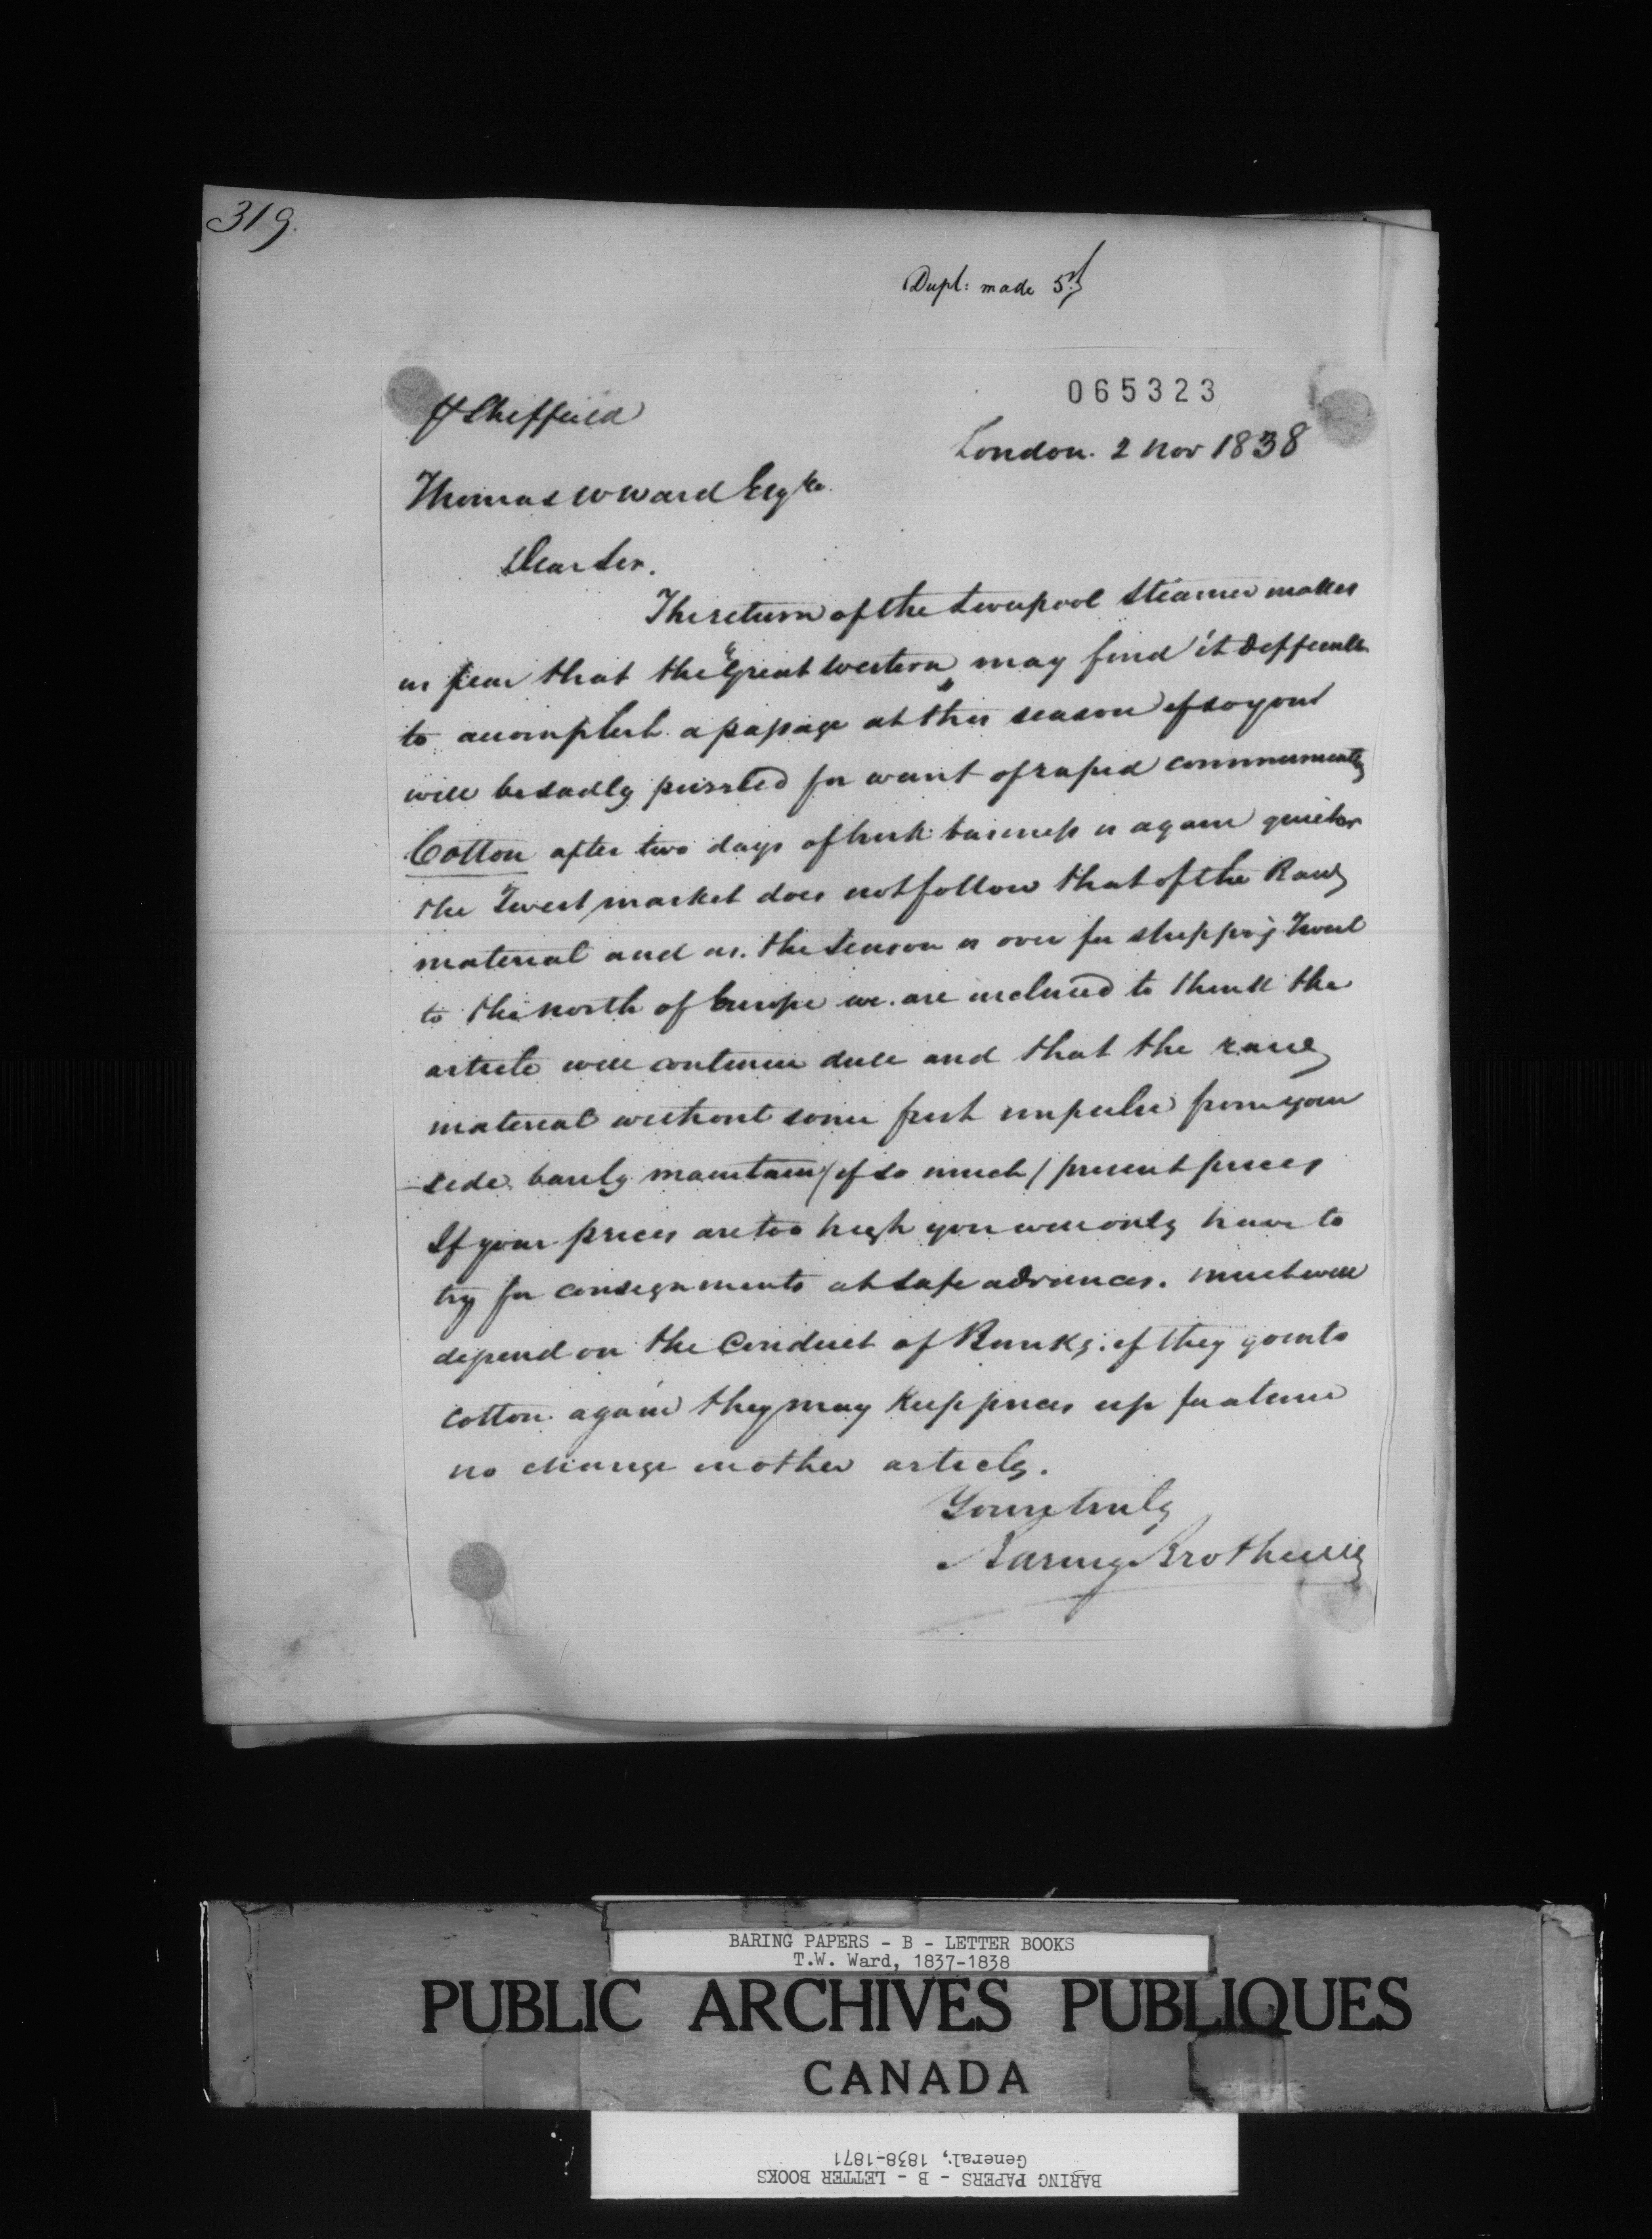 319.
Dupl: made 5th
065323
pr Sheffield
London. 2 Nov 1838
Thomas W Ward Esqre
Dear Sir.
The return of the Liverpool Steamer makes
us fear that the "Great Western" may find it difficult
to accomplish a passage at this season if so you
will be sadly puzzled for want of rapid communicatn
Cotton after two days of brisk business is again quieter
the Twist market does not follow that of the Raw
material and as the season is over for shipping Twist
to the north of Europe we are inclined to think the
article will continue dull and that the raw
material without some fresh impulse from your
side barely maintain / if so much / present prices
If your prices are too high you will only have to
try for consignments at safe advances. much will
depend on the Conduct of Banks; if they go into
cotton again they may keep prices up for a time
no change in other articles.
Yours truly
Baring Brothers
BARING PAPERS - B - LETTER BOOKS
T.W. Ward, 1837-1838
PUBLIC ARCHIVES PUBLIQUES
CANADA
BARING PAPERS - B - LETTER BOOKS
General, 1838-1871